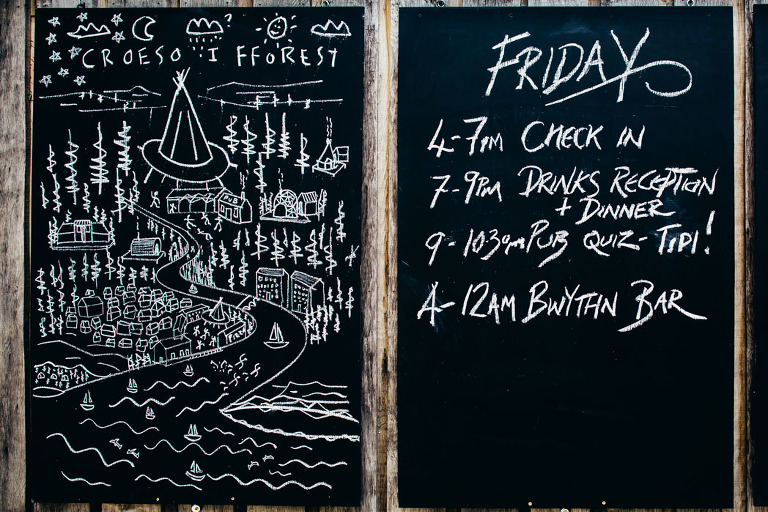 ?
CROESO I FFOREST
FRIDAY
4-7PM CHECK IN
7-9PM DRINKS RECEPTION
+ DINNER
9-1030pm PUB QUIZ - TIPI!
4-12AM BWTHN BAR